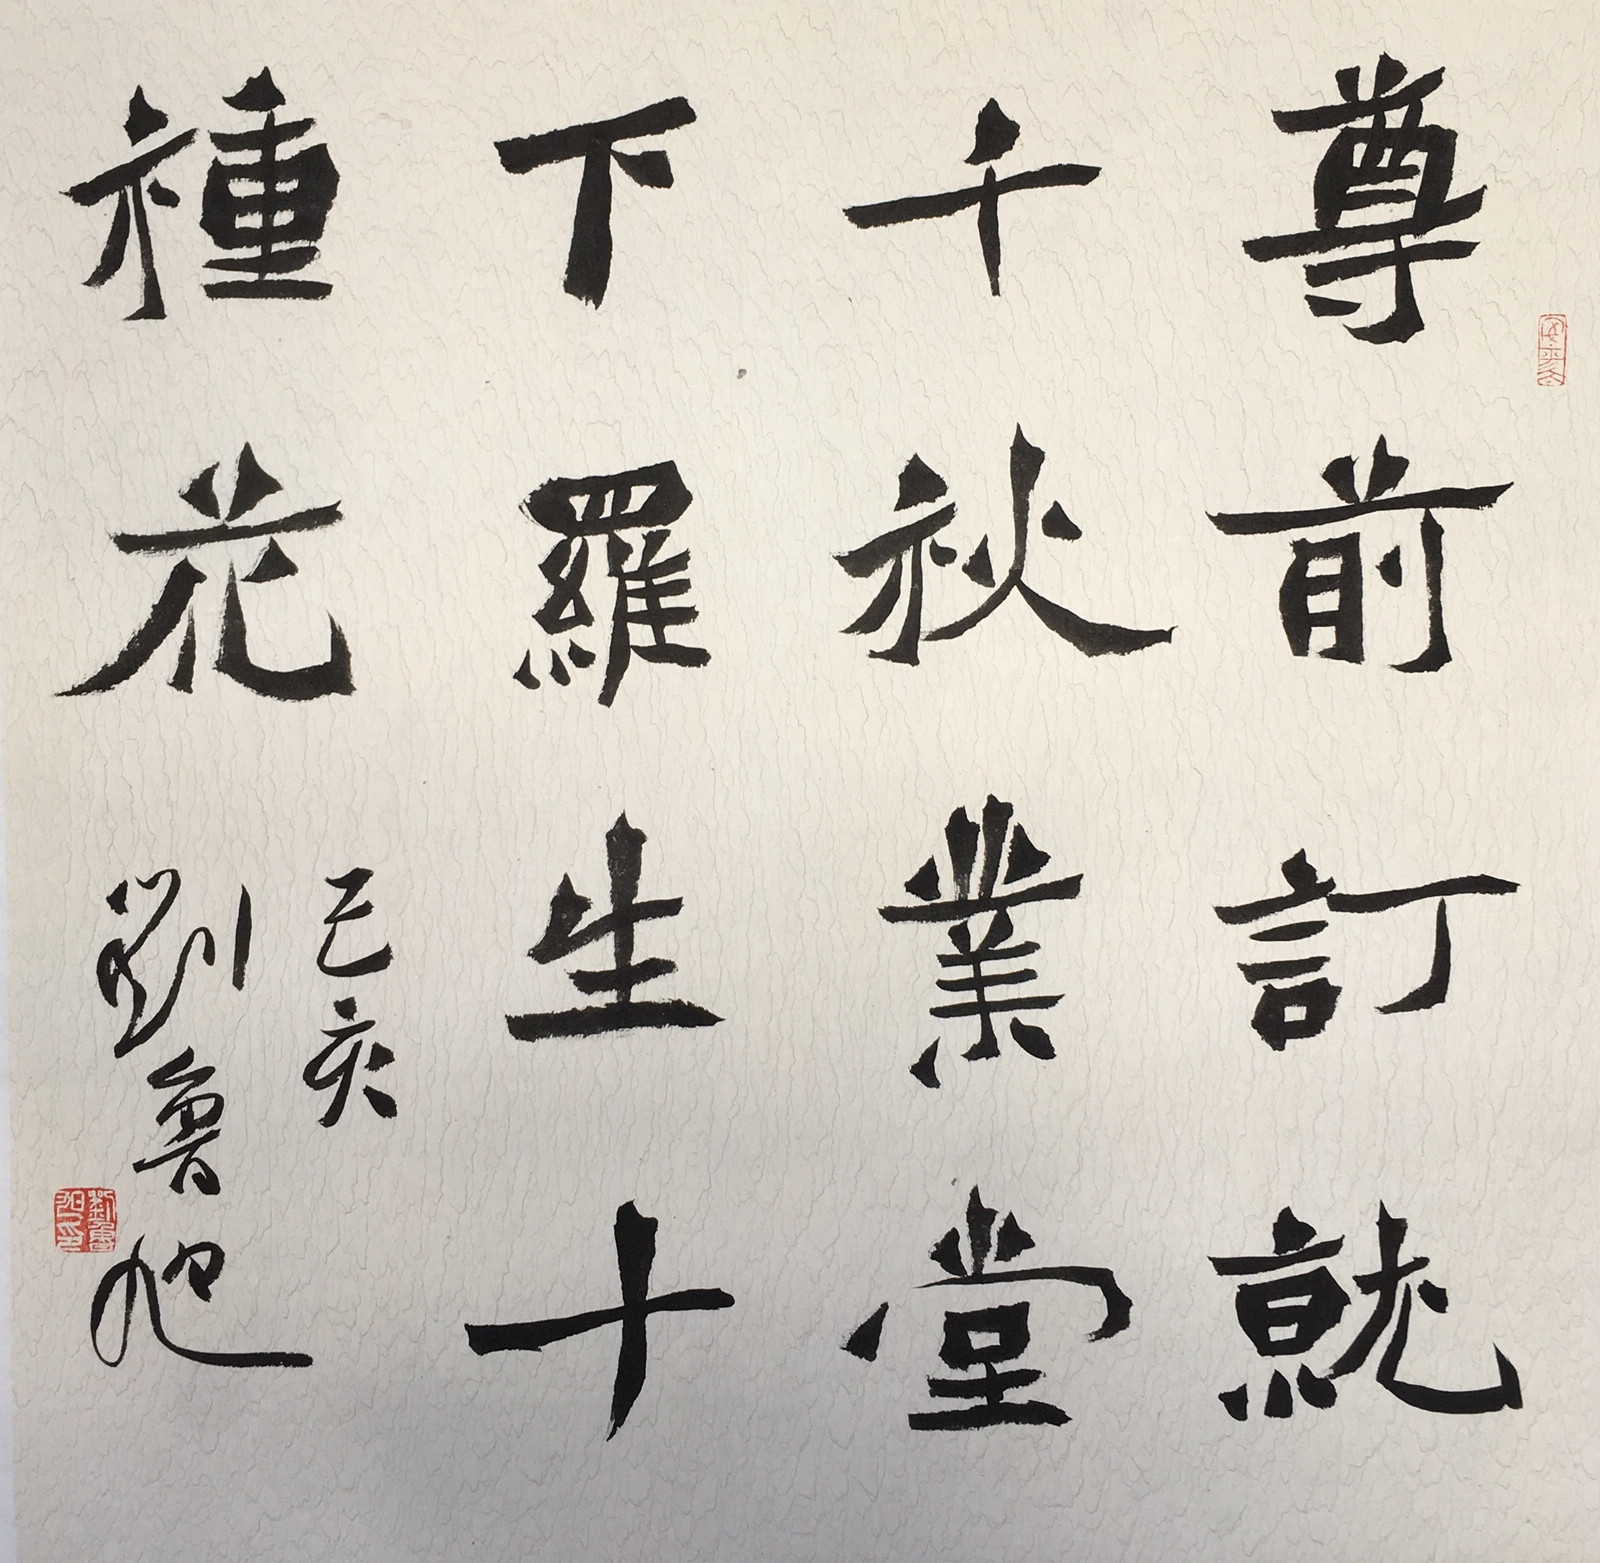 尊前訂就
千秋業堂
下羅生十
種花
己亥
劉魯旭